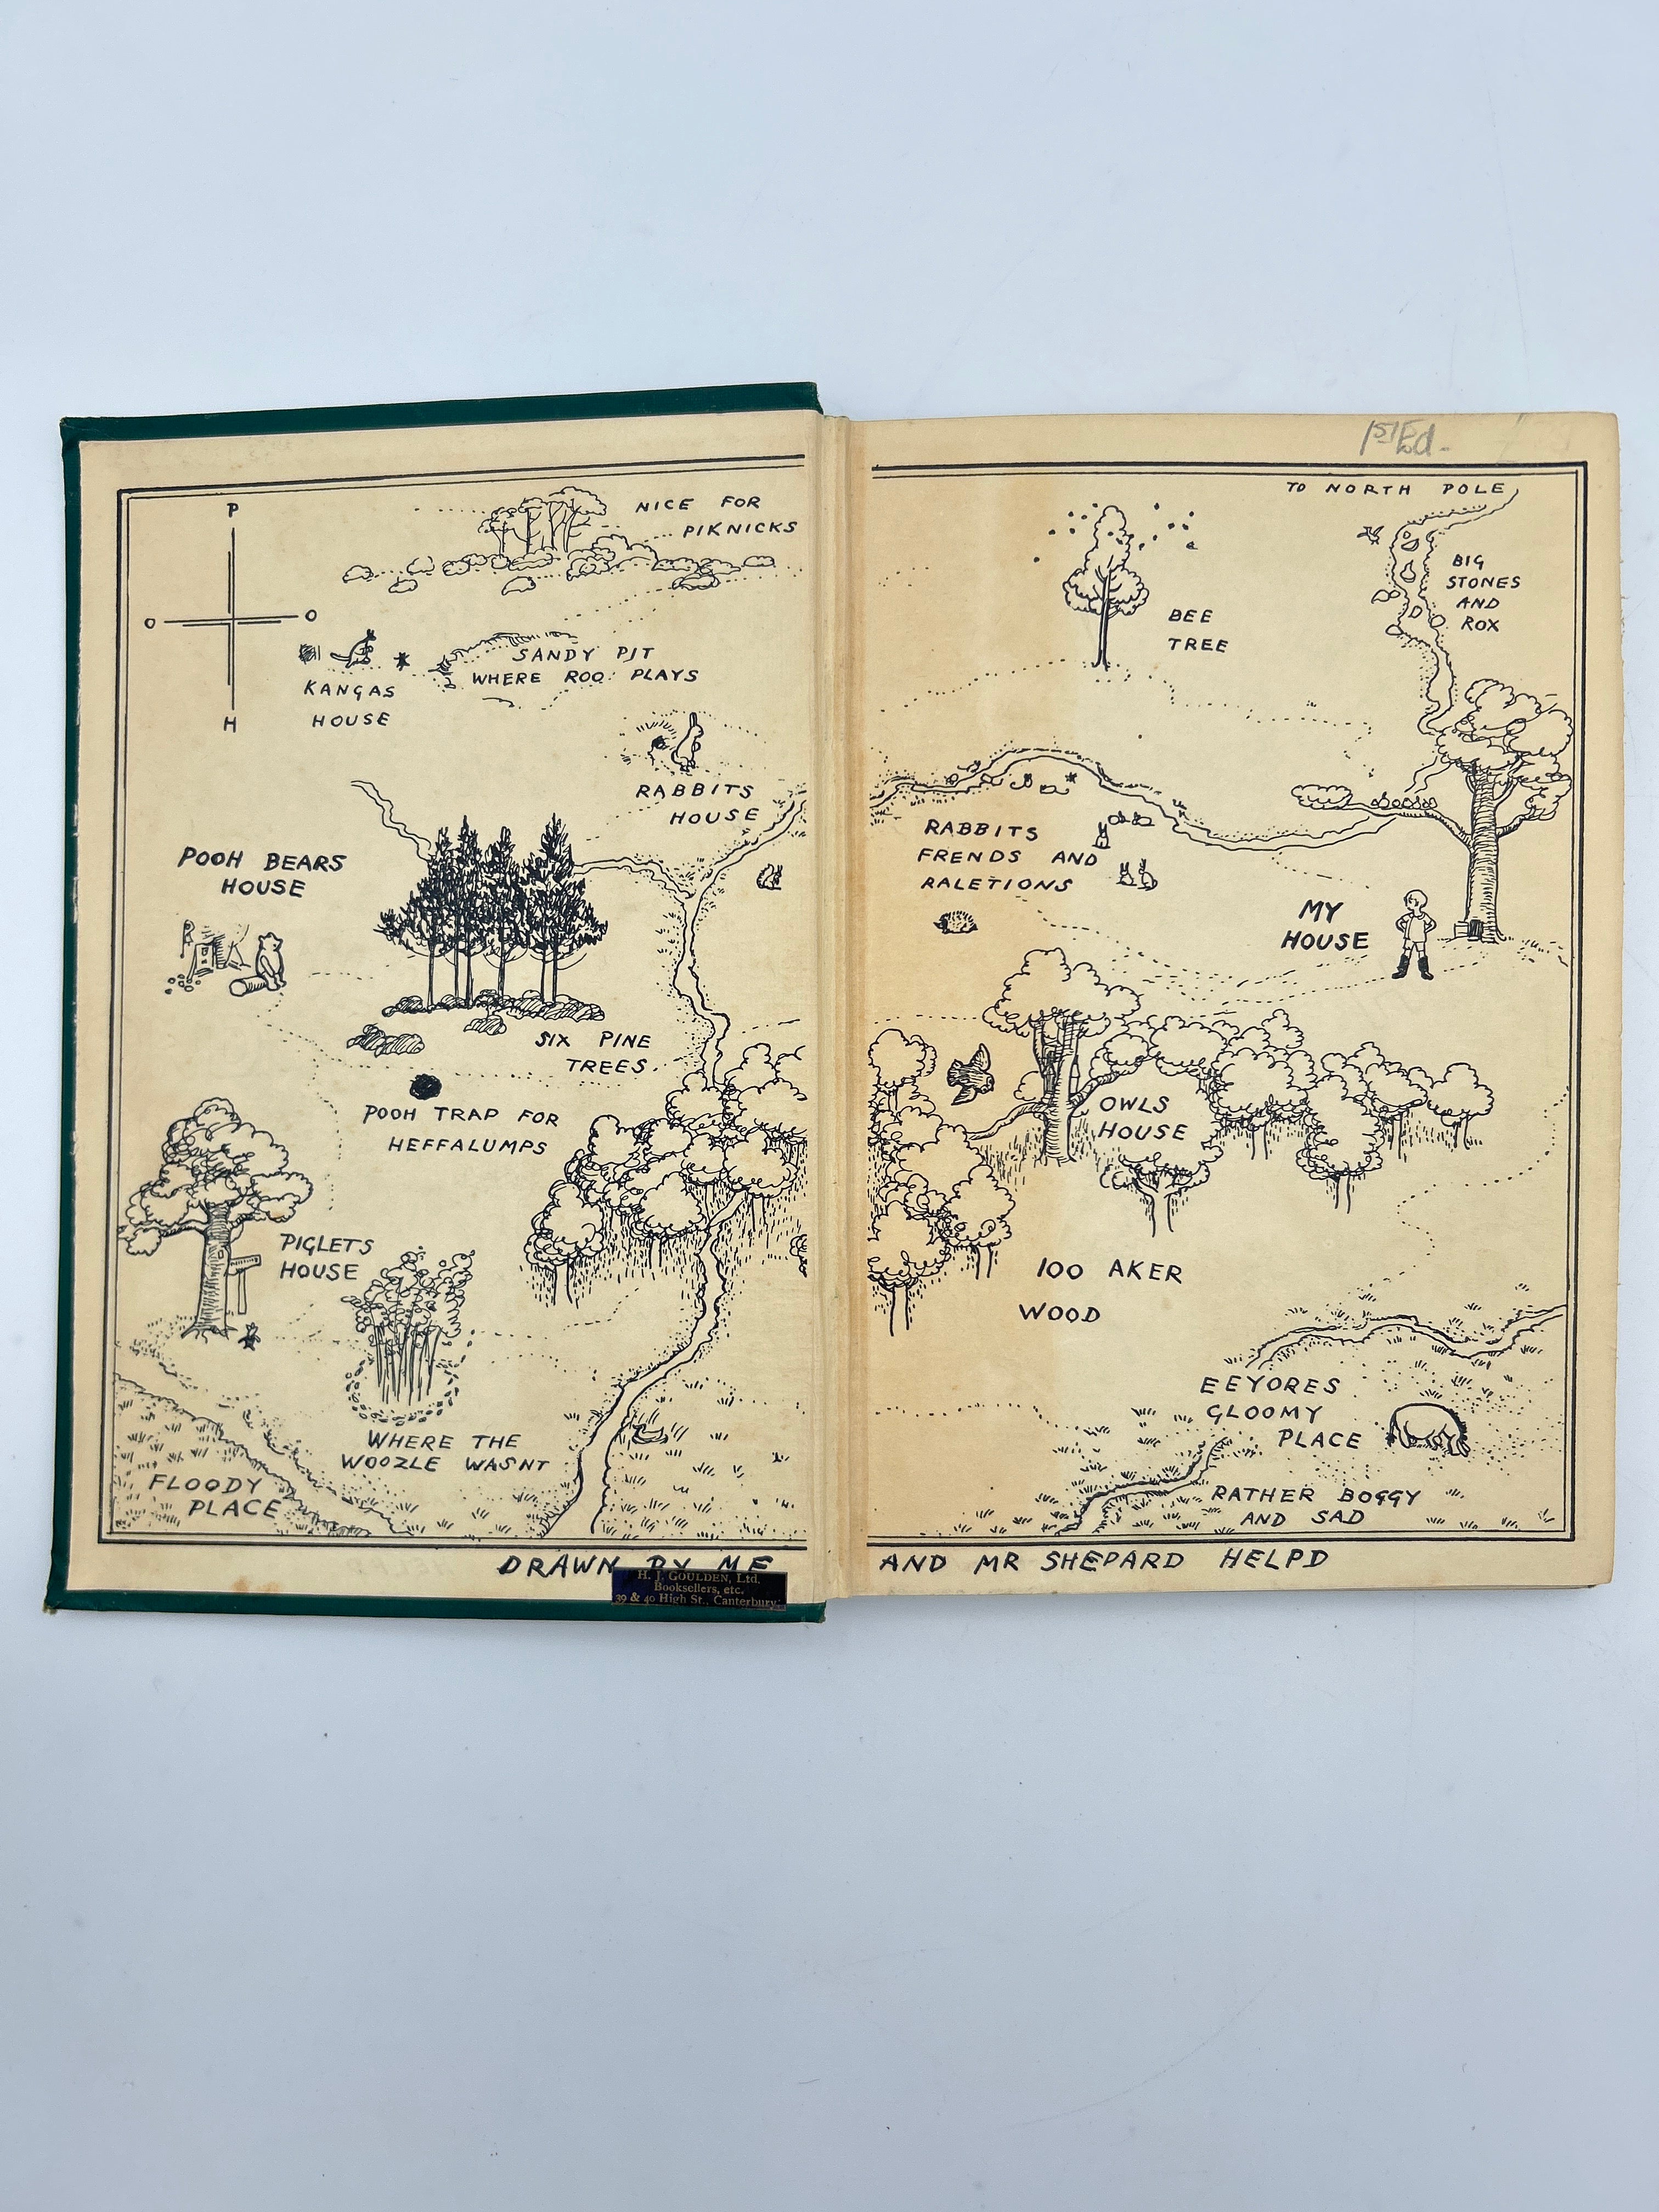 P
O
O
H
NICE FOR
PIKNICKS
SANDY PIT
WHERE ROO PLAYS
KANGAS
HOUSE
RABBITS
HOUSE
POOH BEARS
HOUSE
SIX PINE
TREES.
POOH TRAP FOR
HEFFALUMPS
PIGLETS
HOUSE
WHERE THE
WOOZLE WASNT
FLOODY
PLACE
DRAWN BY ME
H. J. GOULDEN, Ltd.
Booksellers, etc.
39 & 40 High St., Canterbury.
1st Ed.
TO NORTH POLE
BIG
STONES
AND
ROX
BEE
TREE
RABBITS
FRENDS AND
RALETIONS
MY
HOUSE
OWLS
HOUSE
100 AKER
WOOD
EEYORES
GLOOMY
PLACE
RATHER BOGGY
AND SAD
AND MR SHEPARD HELPD